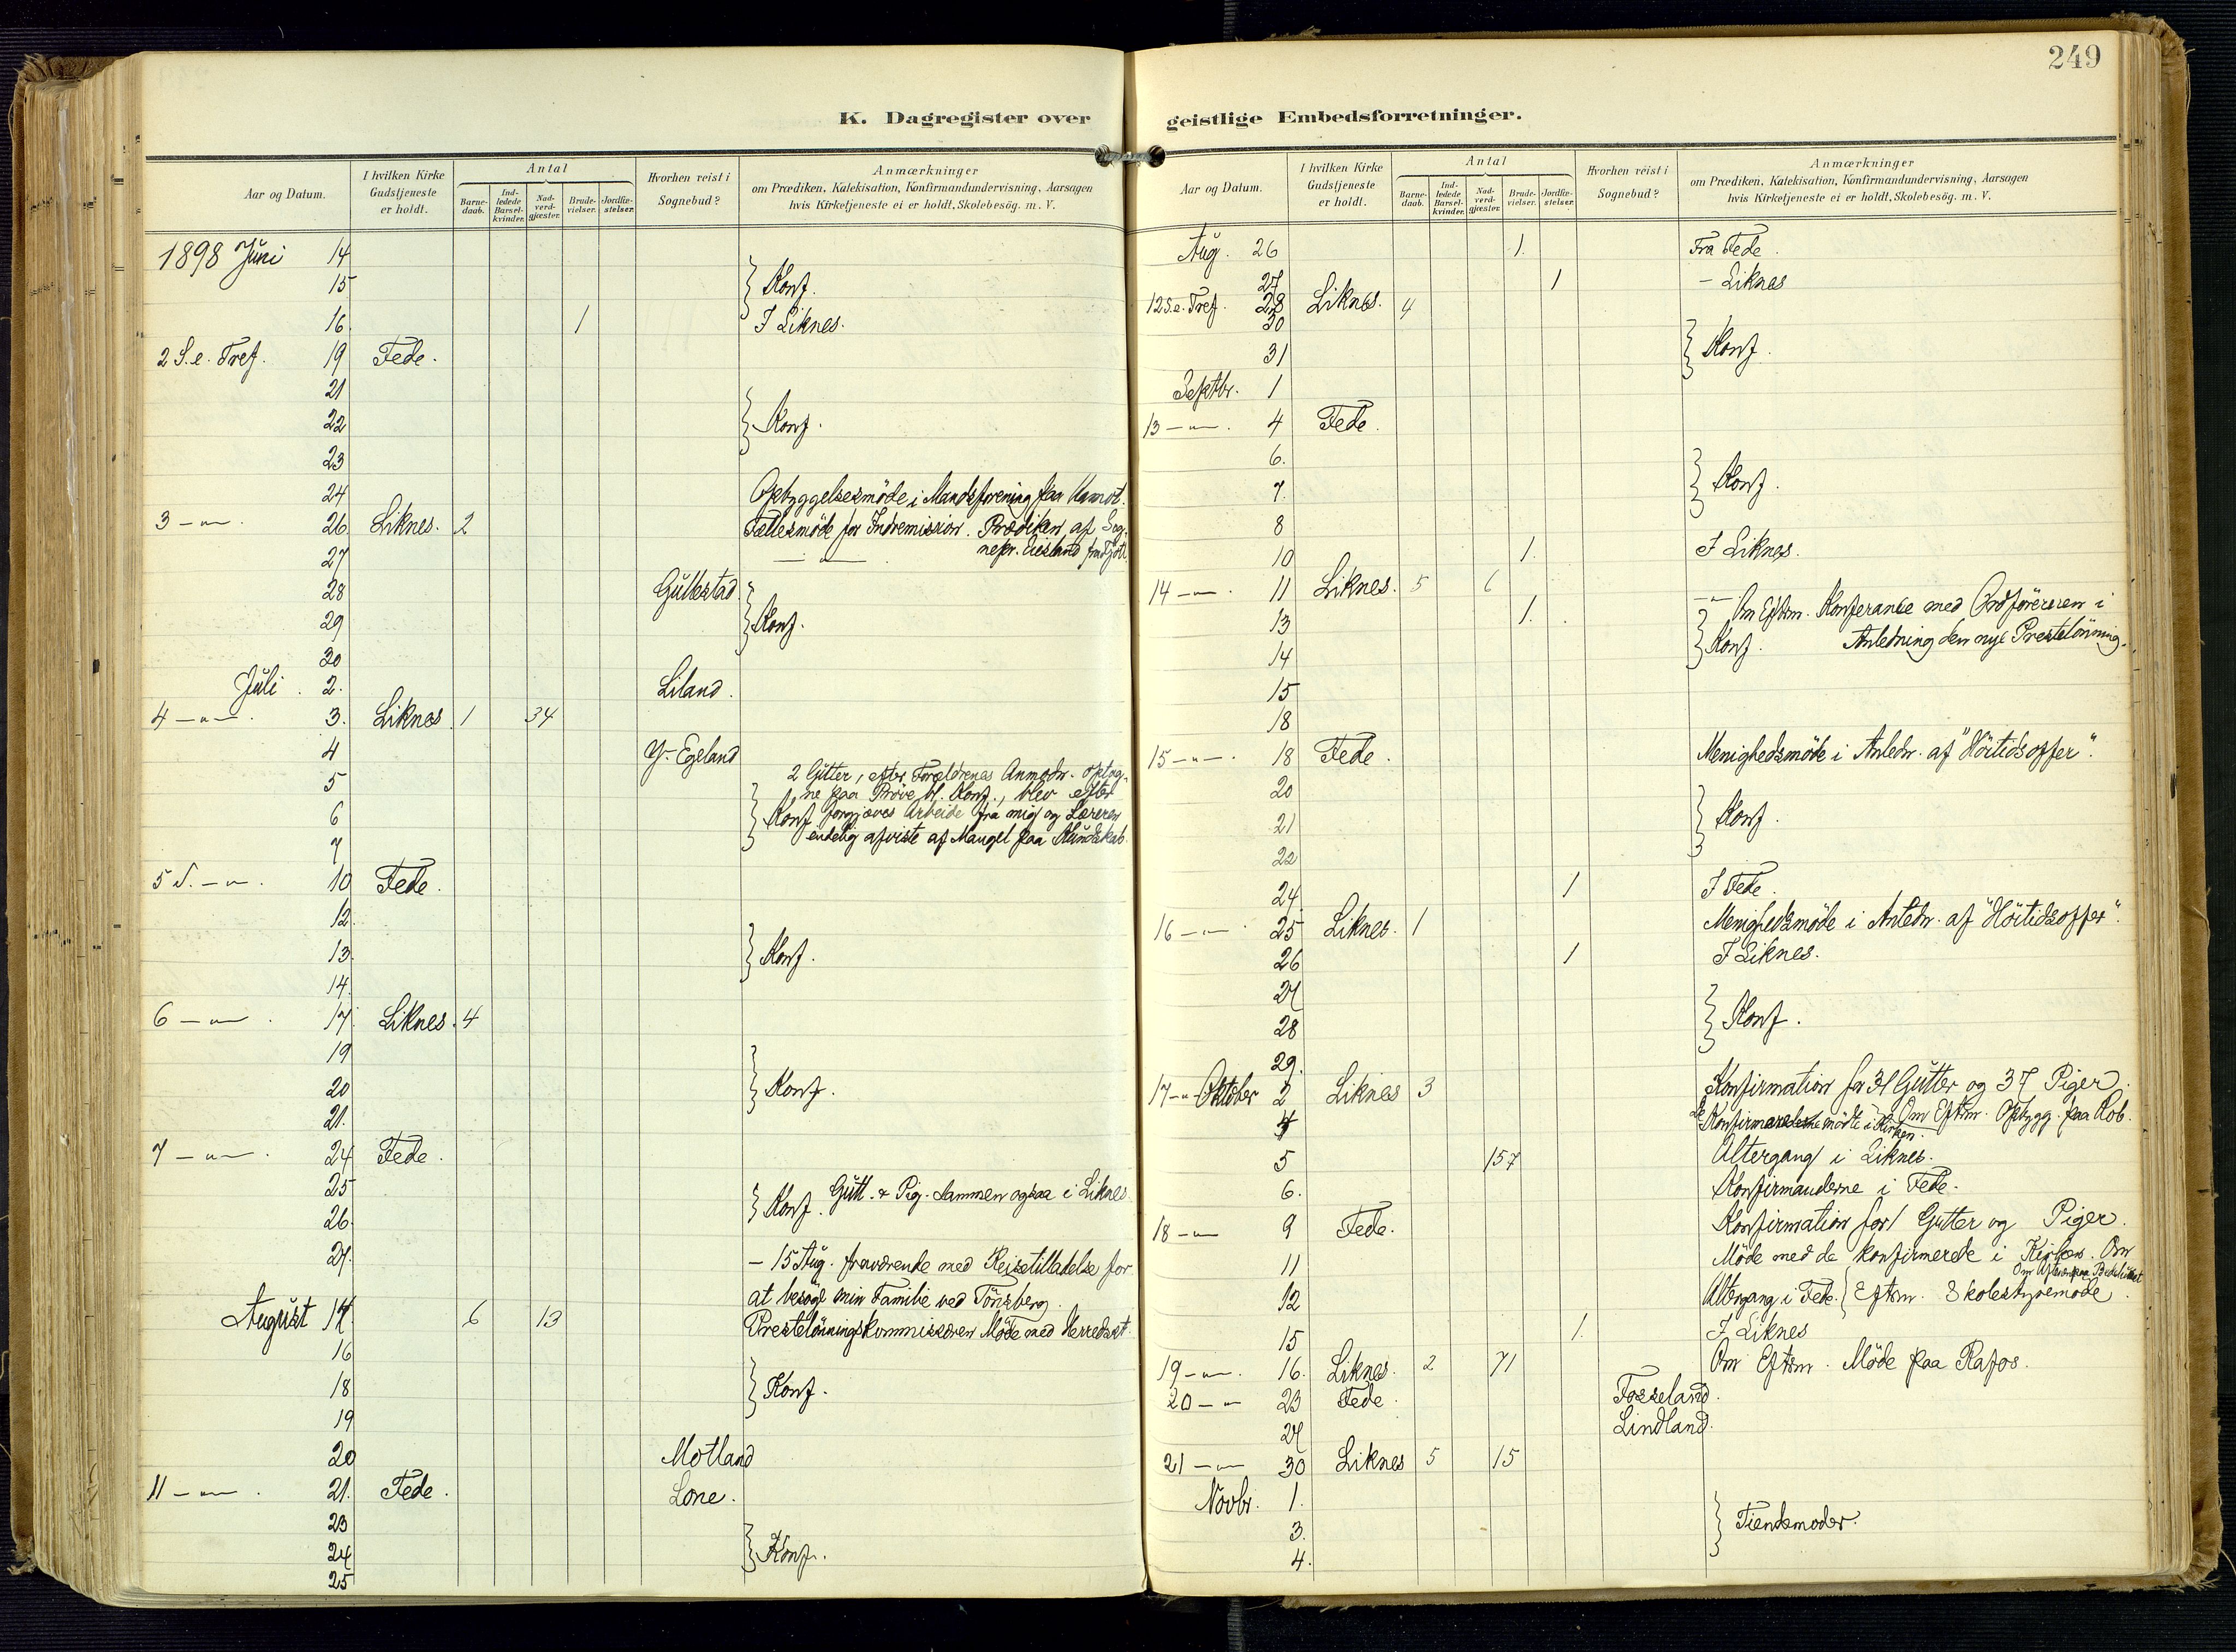 249
K. Dagregister over
Aar og Datum.
I hvilken Kirke Gudstjeneste er holdt.
Antal
Barne-daab.
Ind-ledede Barsel-kvinder.
Nad-verd-gjæster.
Brude-vielser.
Jordfæ-stelser.
Hvorhen reist i Sognebud?
Anmærkninger
om Prædiken, Katekisation, Konfirmandundervisning, Aarsagen
hvis Kirketjeneste ei er holdt, Skolebesög. m. V.
1898 Juni 14
15 } Konf.
16. 1 I Liknes.
2 S. e. Tref. 19 Fede.
21
22 } Konf.
23
24 Opbyggelsesmöde i Mandsforening paa
3 — „ — 26 Liknes. 2 Fællesmöde for Indremission. Prædiken af Sog-
27 — „ — nepr.
28 Gullestad
29 } Konf.
30
Juli 2. Liland.
4 — „ — 3. Liknes 1 34
4 Y. Egeland
5 2 Gutter, Forældrenes Anmodn. optag-
ne paa Pröve bl. Konf., blev efter
6 } Konf forgjæves Arbeide fra mig og Læreren
7 endelig afviste af Mangel paa Kundskab.
5 S. — „ — 10 Fede.
12
13 } Konf.
14.
6 — „ — 17 Liknes. 4
19
20 } Konf.
21.
7 — „ — 24 Fede.
25 } Konf. Gutt. & Pig. sammen ogsaa i Liknes
26.
27. — 15 Aug. fraværende med Reisetilladelse for
at besöge min Familie ved Tönsberg.
August 14. 6 13 Prestelönningskommissionen Möde med Herredsst.
16
18 } Konf.
19
20 Motland
11 — „ — 21. Fede. Lone.
23
24 } Konf.
25
geistlige Embedsforretninger.
Aar og Datum.
I hvilken Kirke Gudstjeneste er holdt.
Antal
Barne-daab.
Ind-ledede Barsel-kvinder.
Nad-verd-gjæster.
Brude-vielser.
Jordfæ-stelser.
Hvorhen reist i Sognebud?
Anmærkninger
om Prædiken, Katekisation, Konfirmandundervisning, Aarsagen
hvis Kirketjeneste ei er holdt, Skolebesög. m. V.
Aug. 26 1. Fra Fede.
27 1 — Liknes
12 S. e. Tref. 28 Liknes. 4
30
31 } Konf.
Septbr. 1
13 — „ — 4 Fede.
6.
7. } Konf.
8
10 1. I Liknes.
14 — „ — 11 Liknes. 5 6
13 1. — „ — Om Eftrm. Konferanse med Ordföreren i
14 } Konf. Anledning den nye Prestelönning.
15
18
15 — „ — 18 Fede. Menighedsmöde i Anledn. af "Höitidsoffer".
20
21 } Konf.
22
24 1 I Fede.
16 — „ — 25 Liknes. 1 Menighedsmöde i Anledn. af "Höitidsoffer".
26 1 I Liknes.
27
28 } Konf.
29.
17 — „ — Oktober 2 Liknes 3 Konfirmation for 31 Gutter og 37 Piger.
4 De Konfirmerede mödte i Kirken. } Om Eftrm. Opbygg. paa Rob.
5 157 Altergang i Liknes.
6. Konfirmanderne i Fede.
18 — „ — 9 Fede. Konfirmation for Gutter og Piger.
11 Möde med de konfirmerede i Kirken. Om
Om Aftenen paa Bedehuset
12 Altergang i Fede. { Eftrm. Skolestyremöde.
15 1. I Liknes
19 — „ — 16. Liknes. 2 71 Om Eftrm. Möde paa Rafos.
20 — „ — 23 Fede. Fosseland.
24 Lindland.
21 — „ — 30 Liknes 5 15
Novbr. 1.
3. } Tiendemöder.
4.